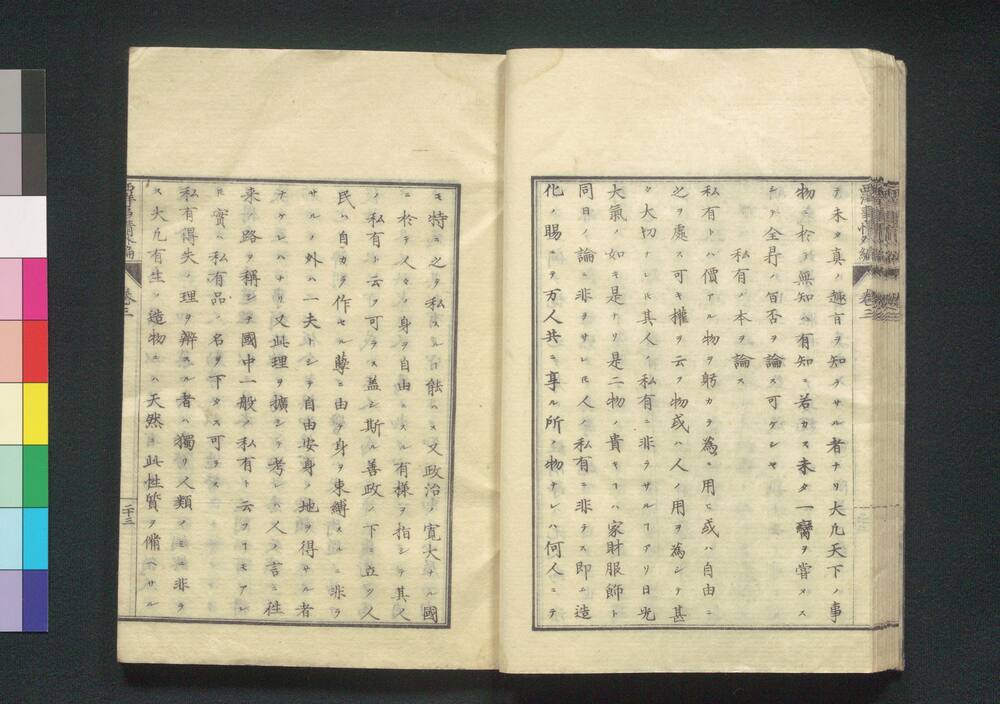 テ未タ真ノ趣旨ヲ知ラサル者ナリ大凡天下ノ事
物ニ於テ無知ハ有知ニ若カス未タ一臠ヲ嘗メス
シテ全鼎ノ旨否ヲ論ス可ケンヤ
私有ノ本ヲ論ス
私有トハ價アル物ヲ躬カラ為ニ用ヒ或ハ自由ニ
之ヲ處ス可キ權ヲ云フ物或ハ人ノ用ヲ為シテ甚
タ大切ナレ𪜈其人ノ私有ニ非ラサルヿアリ日光
大氣ノ如キ是ナリ是二物ノ貴キヿハ家財服飾ト
同日ノ論ニ非ラサレ𪜈人ノ私有ニ非ラス即ニ造
化ノ賜ニテ万人共ニ享ル所ノ物ナレハ何人ニテ
西洋事情外編
卷三
モ特ニ之ヲ私スルヿ能ハス又政治ノ寛大ナル國
ニ於テ人々ノ身ヲ自由ニスル有様ヲ指シテ其人
ノ私有ト云フ可ラス盖シ斯ル善政ノ下ニ立ツ人
民ハ自カラ作セル孽ニ由テ身ヲ束縛スルニ非ラ
サルノ外ハ一夫トシテ自由安身ノ地ヲ得サル者
ナケレハナリ又此理ヲ擴シテ考レハ人ノ言ニ往
来ノ路ヲ稱シテ國中一般ノ私有ト云フヿモアレ
𪜈實ハ私有品ノ名ヲ下タス可ラス
私有得失ノ理ヲ辨スル者ハ獨リ人類ノミニ非ラ
ス大凡有生ノ造物ニハ天然ニ此性質ヲ備ヘサル
西洋事情外編
卷三
二十三